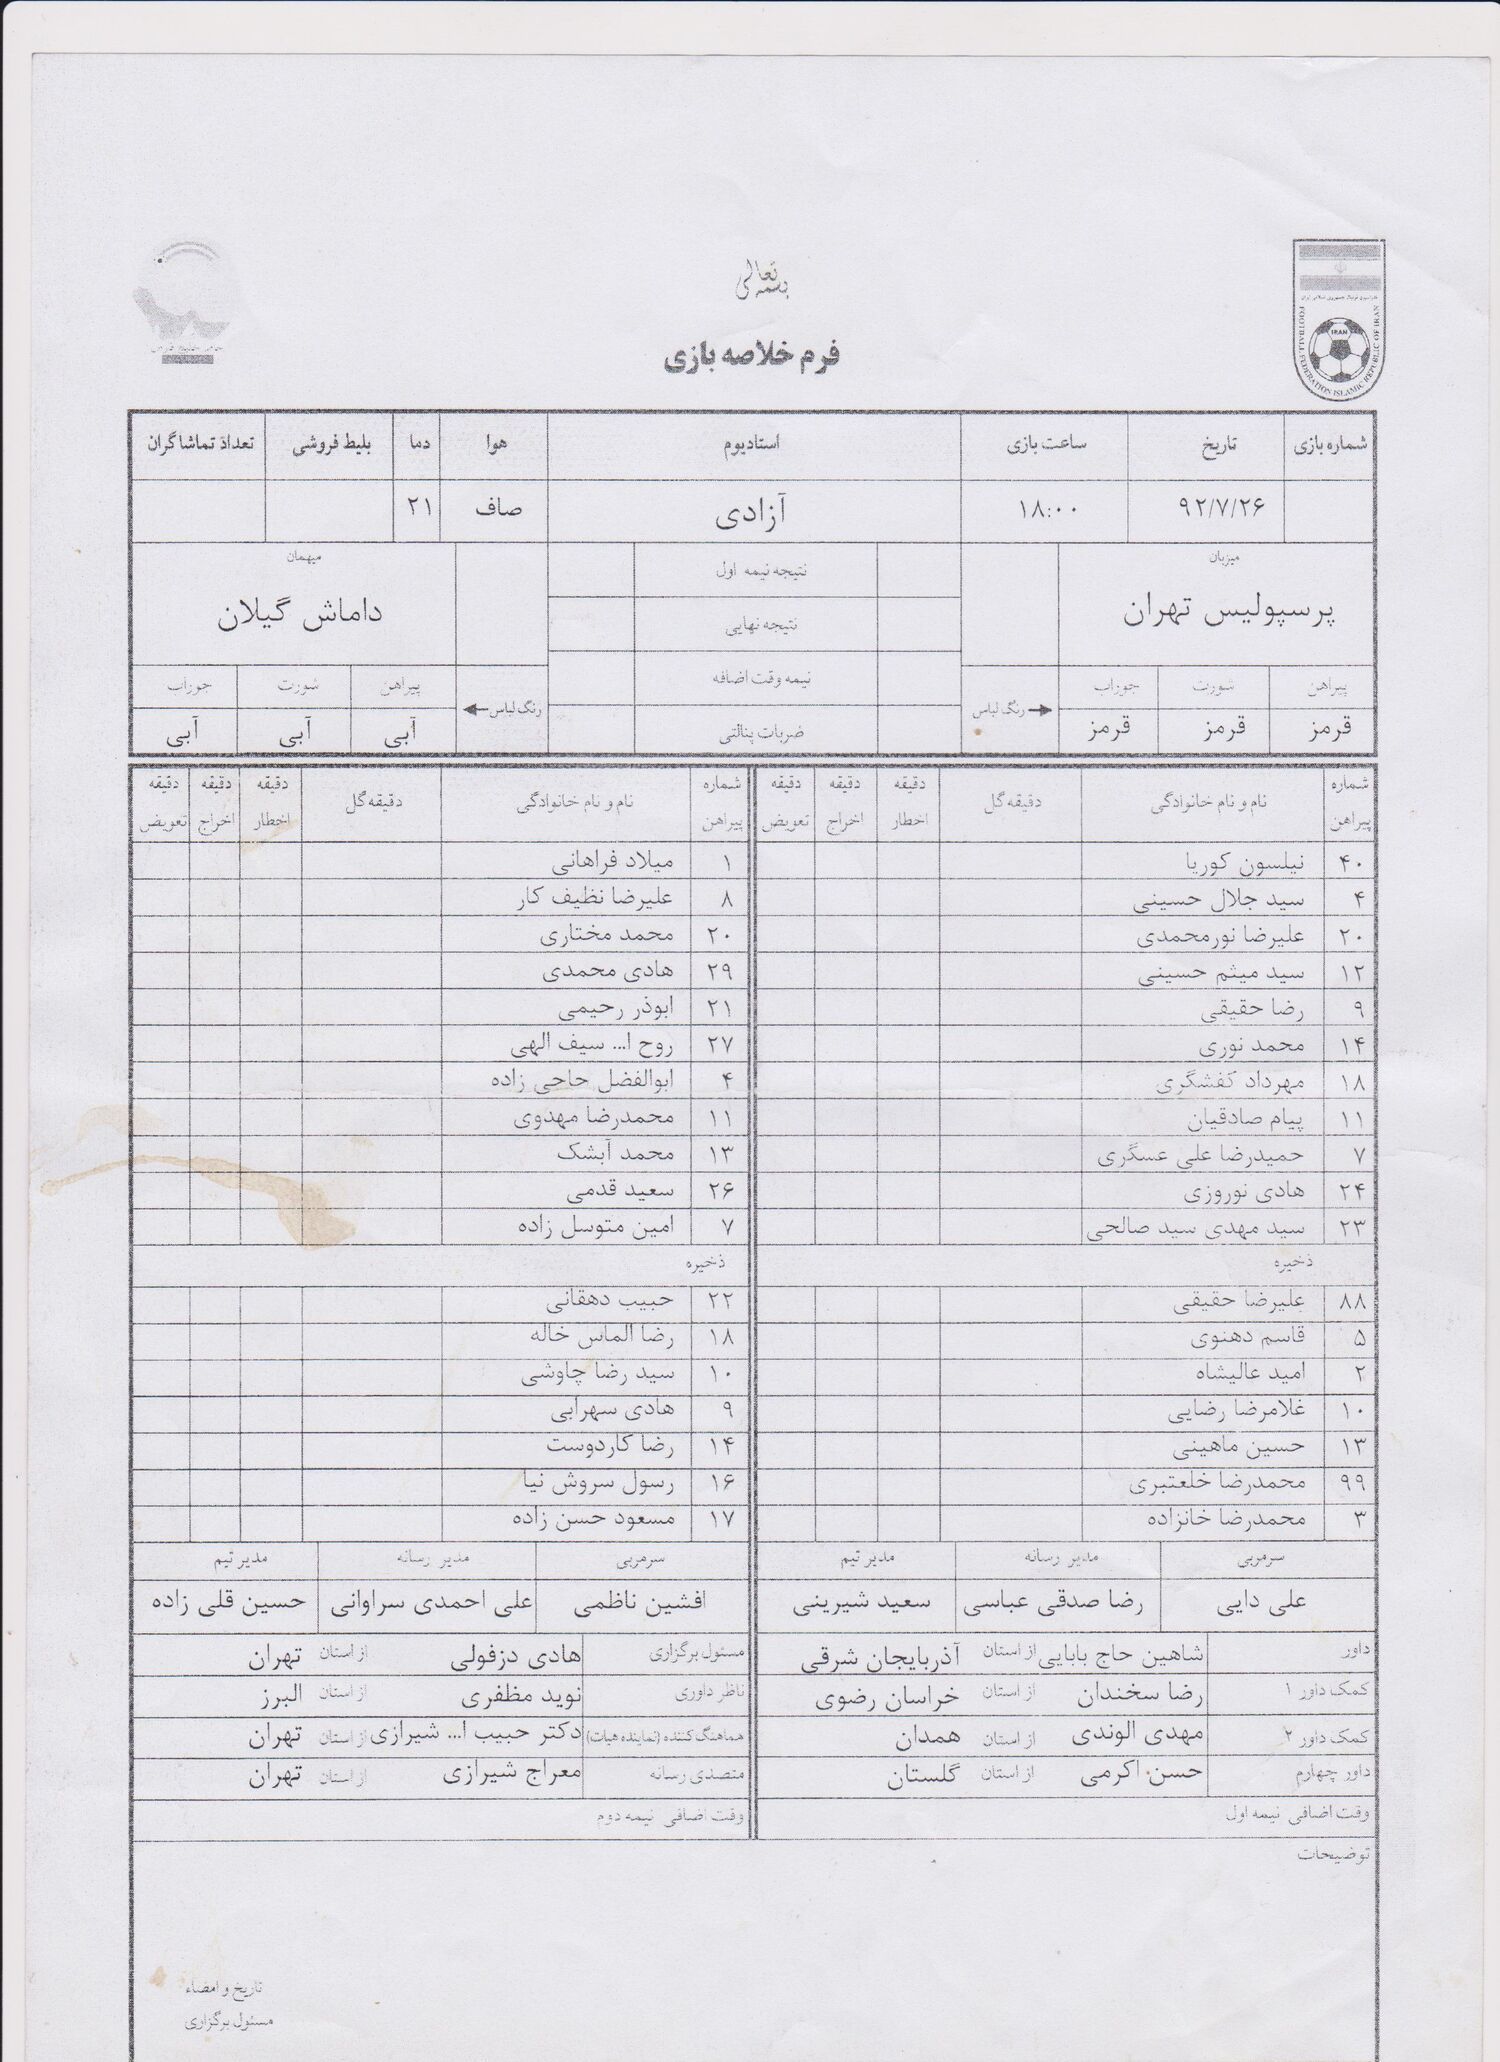 بسمه تعالی
فرم خلاصه بازی
IRAN
FOOTBALL FEDERATION ISLAMIC REPUBLIC OF IRAN
شماره بازی تاریخ ساعت بازی استادیوم هوا دما بلیط فروشی تعداد تماشاگران
۹۲/۷/۲۶ ۱۸:۰۰ آزادی صاف ۲۱
میزبان نتیجه نیمه اول میهمان
پرسپولیس تهران نتیجه نهایی داماش گیلان
پیراهن شورت جوراب رنگ لباس نیمه وقت اضافه رنگ لباس پیراهن شورت جوراب
قرمز قرمز قرمز ضربات پنالتی آبی آبی آبی
شماره پیراهن نام و نام خانوادگی دقیقه گل دقیقه اخطار دقیقه اخراج دقیقه تعویض شماره پیراهن نام و نام خانوادگی دقیقه گل دقیقه اخطار دقیقه اخراج دقیقه تعویض
۴۰ نیلسون کوریا ۱ میلاد فراهانی
۴ سید جلال حسینی ۸ علیرضا نظیف کار
۲۰ علیرضا نورمحمدی ۲۰ محمد مختاری
۱۲ سید میثم حسینی ۲۹ هادی محمدی
۹ رضا حقیقی ۲۱ ابوذر رحیمی
۱۴ محمد نوری ۲۷ روح ا... سیف الهی
۱۸ مهرداد کفشگری ۴ ابوالفضل حاجی زاده
۱۱ پیام صادقیان ۱۱ محمدرضا مهدوی
۷ حمیدرضا علی عسگری ۱۳ محمد آبشک
۲۴ هادی نوروزی ۲۶ سعید قدمی
۲۳ سید مهدی سید صالحی ۷ امین متوسل زاده
ذخیره ذخیره
۸۸ علیرضا حقیقی ۲۲ حبیب دهقانی
۵ قاسم دهنوی ۱۸ رضا الماس خاله
۲ امید عالیشاه ۱۰ سید رضا چاوشی
۱۰ غلامرضا رضایی ۹ هادی سهرابی
۱۳ حسین ماهینی ۱۴ رضا کاردوست
۹۹ محمدرضا خلعتبری ۱۶ رسول سروش نیا
۳ محمدرضا خانزاده ۱۷ مسعود حسن زاده
سرمربی مدیر رسانه مدیر تیم سرمربی مدیر رسانه مدیر تیم
علی دایی رضا صدقی عباسی سعید شیرینی افشین ناظمی علی احمدی سراوانی حسین قلی زاده
داور شاهین حاج بابایی از استان آذربایجان شرقی مسئول برگزاری هادی دزفولی از استان تهران
کمک داور ۱ رضا سخندان از استان خراسان رضوی ناظر داوری نوید مظفری از استان البرز
کمک داور ۲ مهدی الوندی از استان همدان هماهنگ کننده (نماینده هیات) دکتر حبیب ا... شیرازی از استان تهران
داور چهارم حسن اکرمی از استان گلستان متصدی رسانه معراج شیرازی از استان تهران
وقت اضافی نیمه اول وقت اضافی نیمه دوم
توضیحات
تاریخ و امضاء
مسئول برگزاری